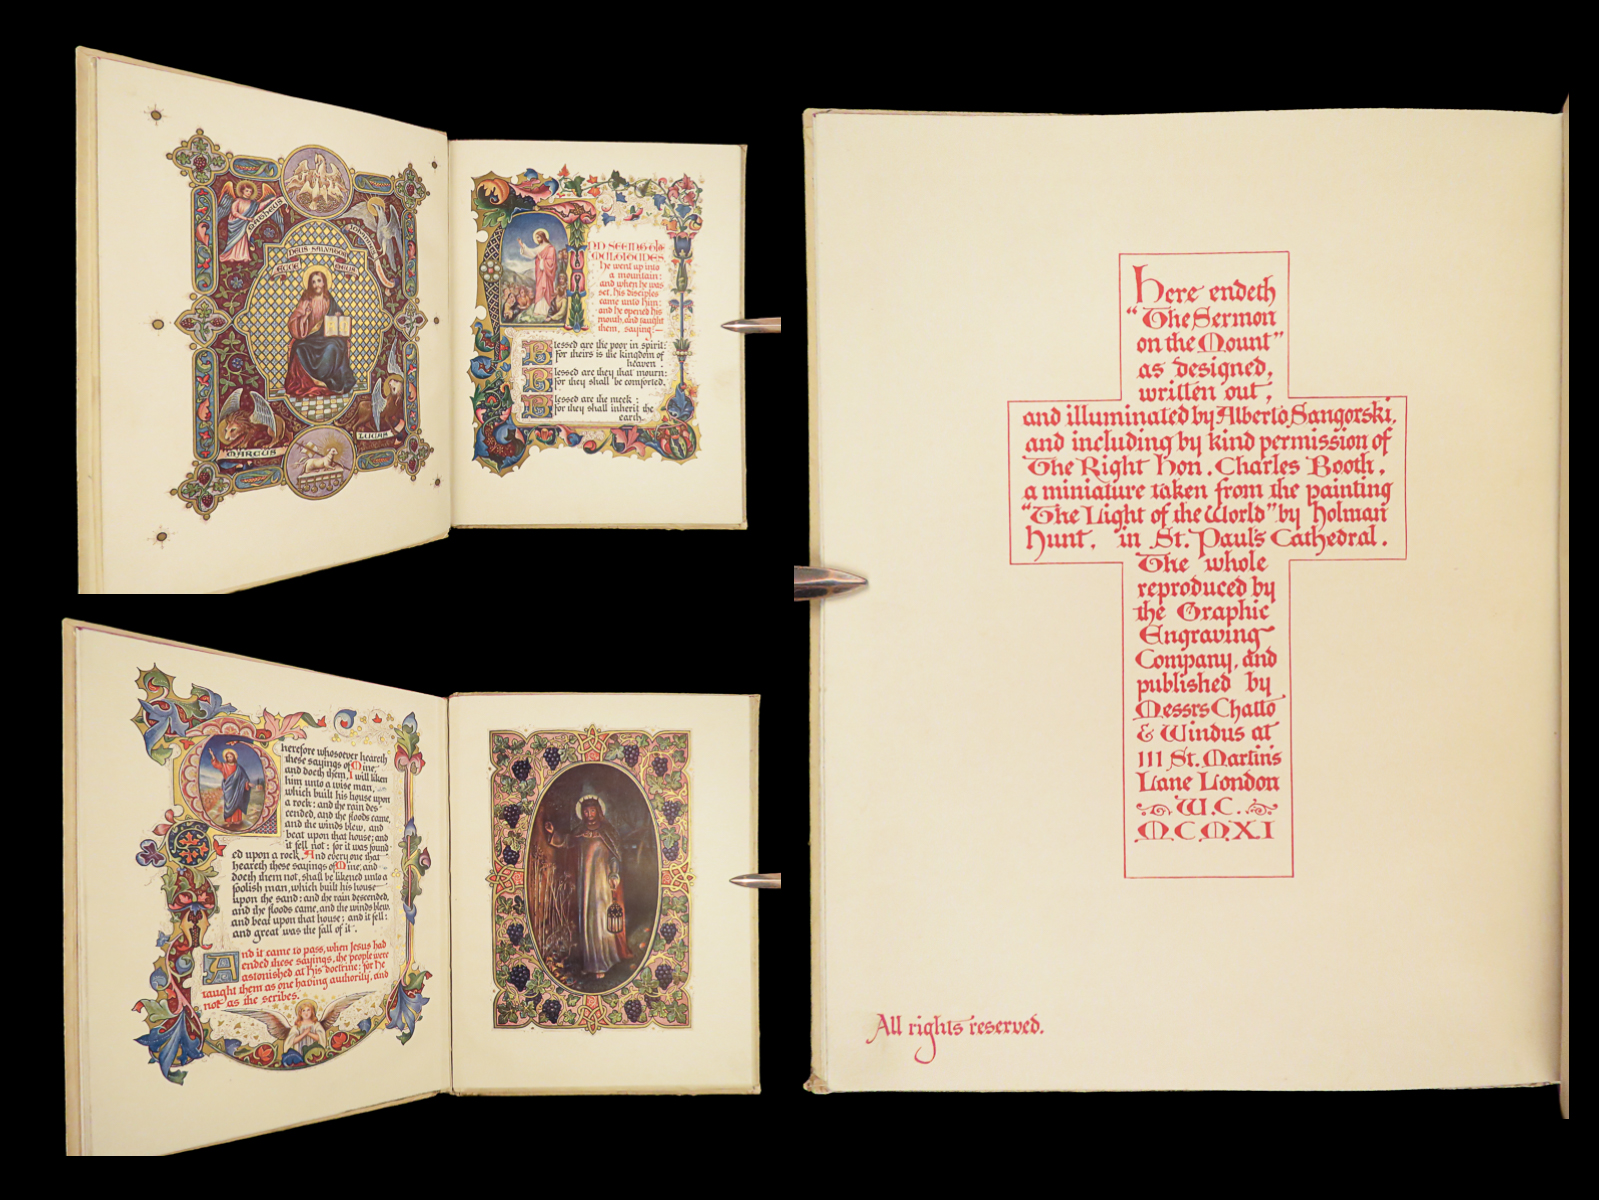 Matheus
Johannes
DEUS SALVATOR
ECCE DEUS
MARCUS
LUCAS
AND SEEING THE
MULTITUDES
he went up into
a mountain:
and when he was
set, his disciples
came unto him:
and he opened his
mouth, and taught
them, saying:—
Blessed are the poor in spirit:
for theirs is the kingdom of
heaven.
Blessed are they that mourn:
for they shall be comforted.
Blessed are the meek:
for they shall inherit the
earth.
Therefore whosoever heareth
these sayings of Mine,
and doeth them, I will liken
him unto a wise man,
which built his house upon
a rock: and the rain des-
cended, and the floods came,
and the winds blew, and
beat upon that house; and
it fell not: for it was found-
ed upon a rock. And every one that
heareth these sayings of Mine, and
doeth them not, shall be likened unto a
foolish man, which built his house
upon the sand: and the rain descended,
and the floods came, and the winds blew,
and beat upon that house; and it fell:
and great was the fall of it.
And it came to pass, when Jesus had
ended these sayings, the people were
astonished at His doctrine: for He
taught them as one having authority, and
not as the scribes.
Here endeth
"The Sermon
on the Mount"
as designed,
written out,
and illuminated by Alberto Sangorski,
and including by kind permission of
The Right Hon. Charles Booth,
a miniature taken from the painting
"The Light of the World" by Holman
Hunt, in St. Paul's Cathedral.
The whole
reproduced by
the Graphic
Engraving
Company, and
published by
Messrs Chatto
& Windus at
111 St. Martin's
Lane London
W.C.
MCMXI
All rights reserved.